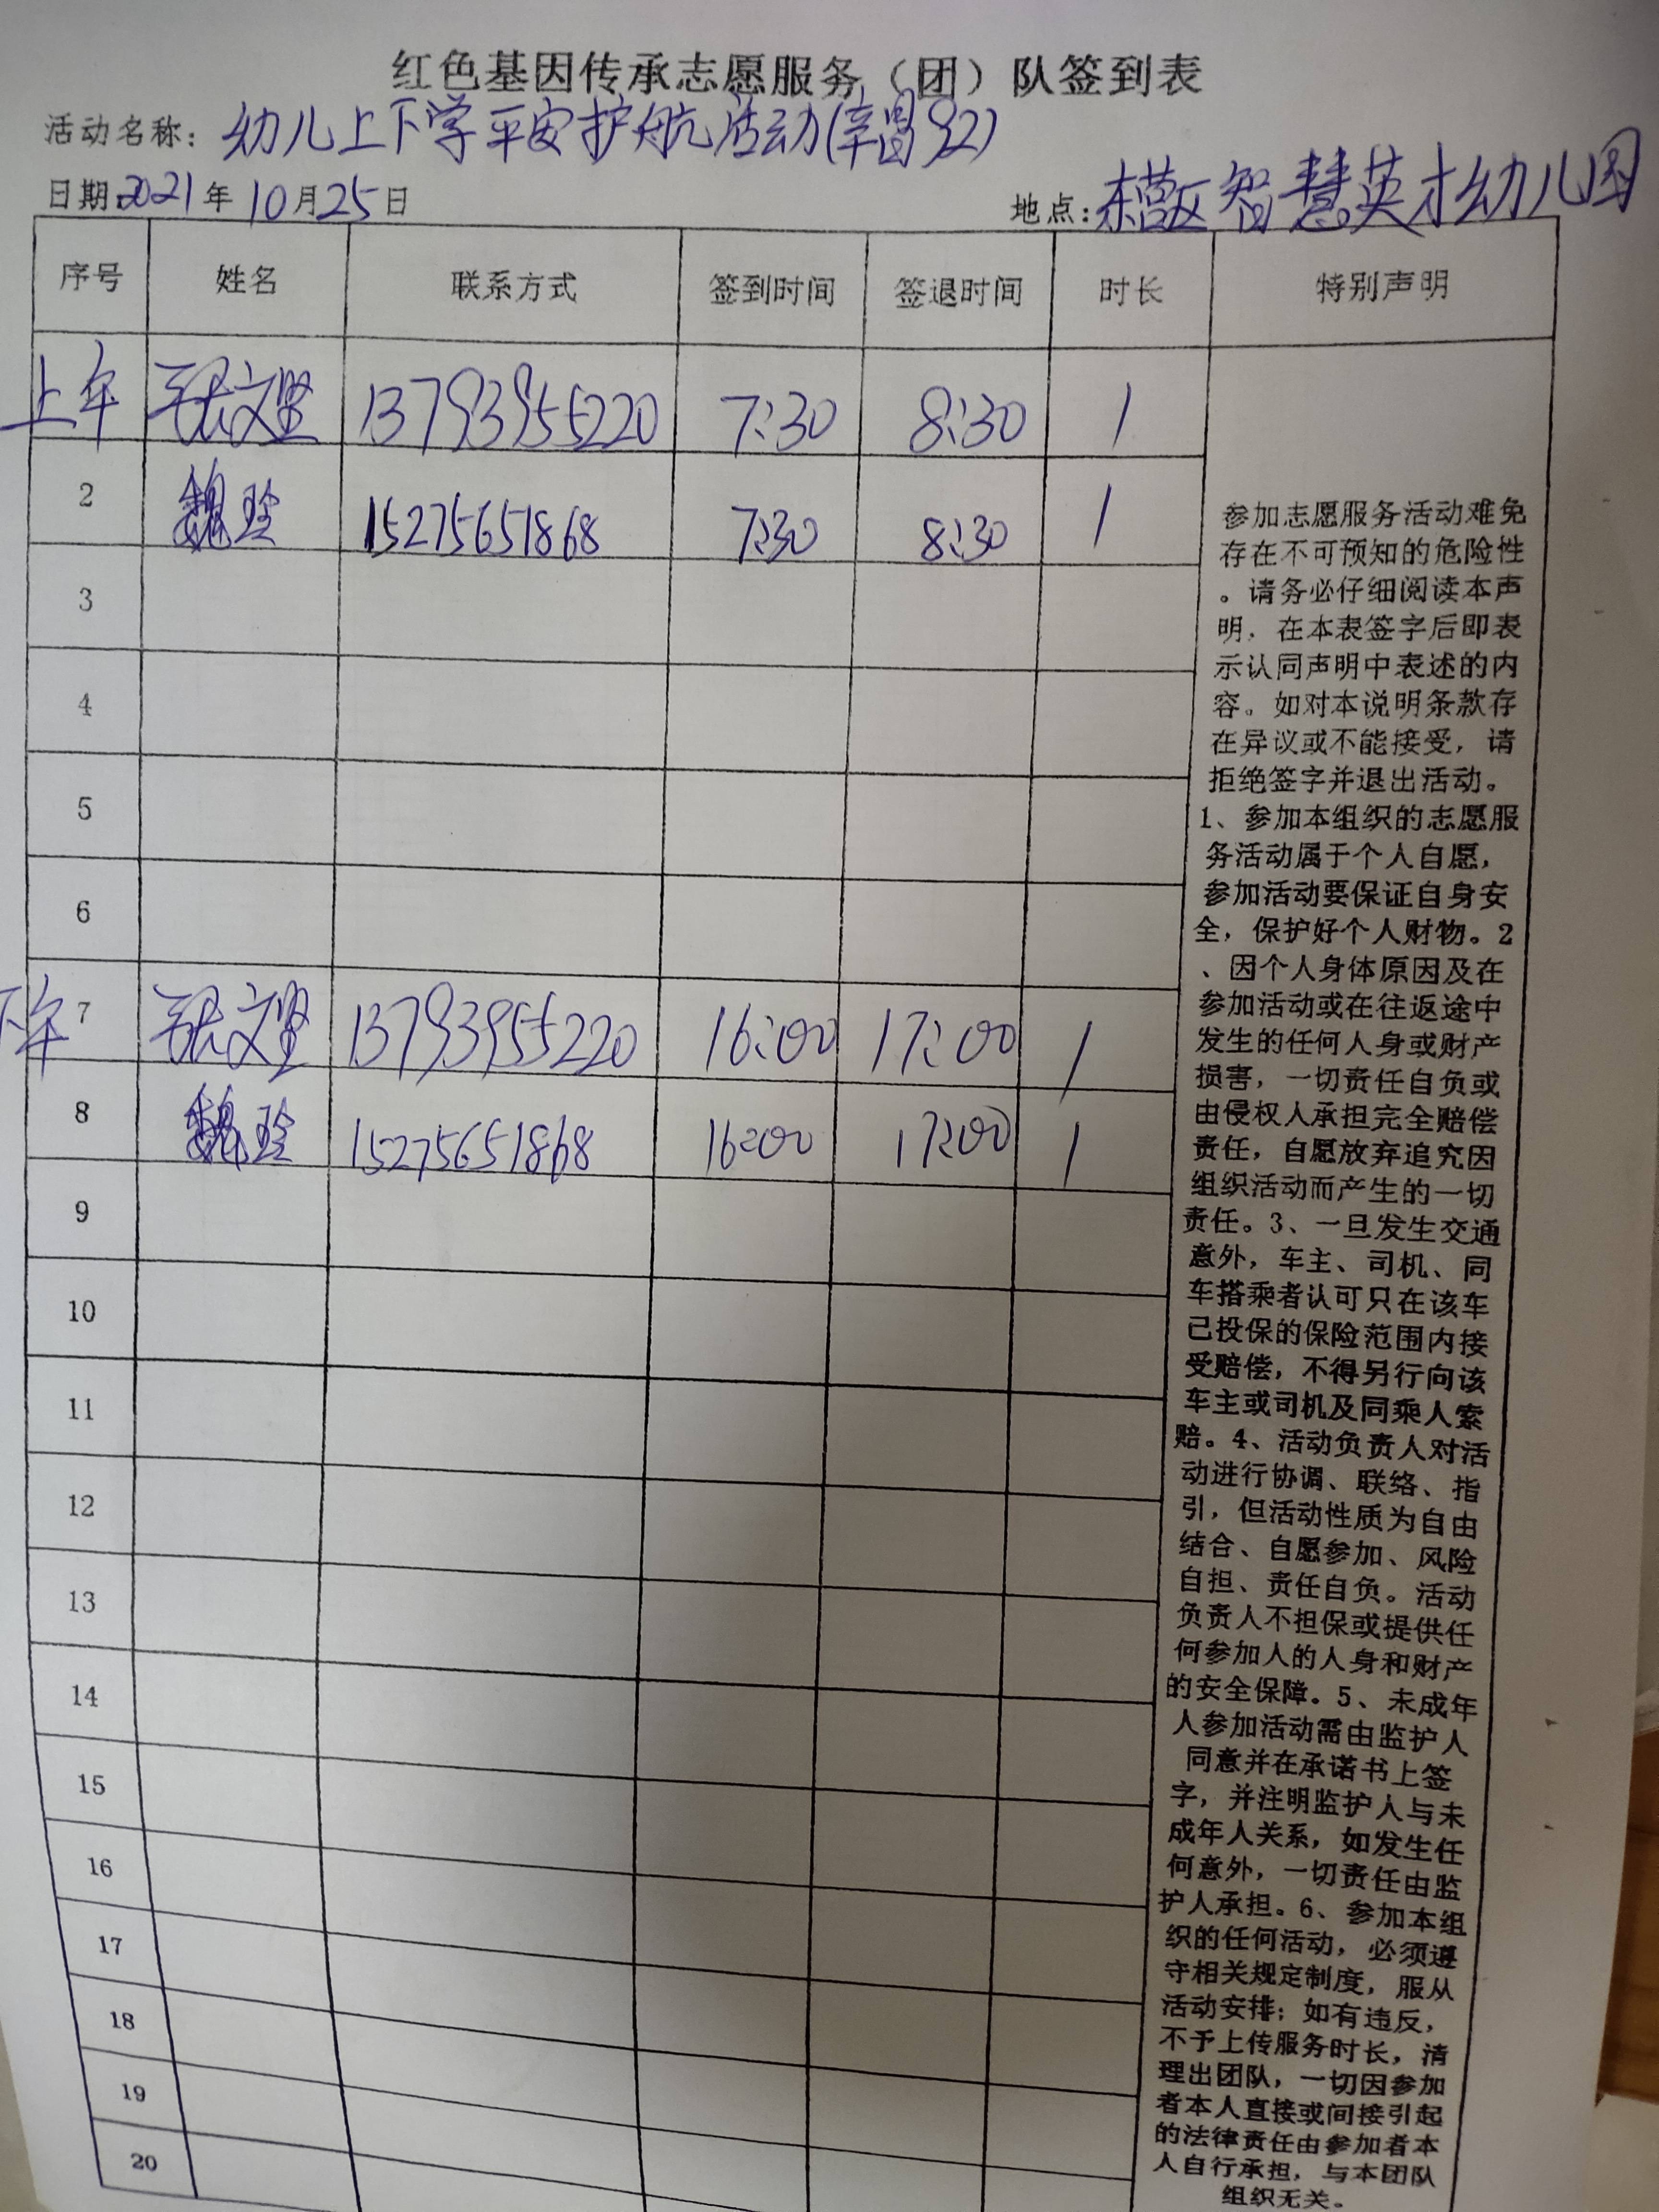 红色基因传承志愿服务（团）队签到表
活动名称：幼儿上下学平安护航活动(辛店92)
日期2021年10月25日 地点：东营区智慧英才幼儿园
序号 姓名 联系方式 签到时间 签退时间 时长 特别声明
上午 张文竖 13793955220 7:30 8:30 1
2 魏玲 15275651868 7:30 8:30 1
3
4
5
6
下午 7 张文竖 13793955220 16:00 17:00 1
8 魏玲 15275651868 16:00 17:00 1
9
10
11
12
13
14
15
16
17
18
19
20
参加志愿服务活动难免
存在不可预知的危险性
。请务必仔细阅读本声
明，在本表签字后即表
示认同声明中表述的内
容。如对本说明条款存
在异议或不能接受，请
拒绝签字并退出活动。
1、参加本组织的志愿服
务活动属于个人自愿，
参加活动要保证自身安
全，保护好个人财物。2
、因个人身体原因及在
参加活动或在往返途中
发生的任何人身或财产
损害，一切责任自负或
由侵权人承担完全赔偿
责任，自愿放弃追究因
组织活动而产生的一切
责任。3、一旦发生交通
意外，车主、司机、同
车搭乘者认可只在该车
已投保的保险范围内接
受赔偿，不得另行向该
车主或司机及同乘人索
赔。4、活动负责人对活
动进行协调、联络、指
引，但活动性质为自由
结合、自愿参加、风险
自担、责任自负。活动
负责人不担保或提供任
何参加人的人身和财产
的安全保障。5、未成年
人参加活动需由监护人
同意并在承诺书上签
字，并注明监护人与未
成年人关系，如发生任
何意外，一切责任由监
护人承担。6、参加本组
织的任何活动，必须遵
守相关规定制度，服从
活动安排；如有违反，
不予上传服务时长，清
理出团队，一切因参加
者本人直接或间接引起
的法律责任由参加者本
人自行承担，与本团队
组织无关。